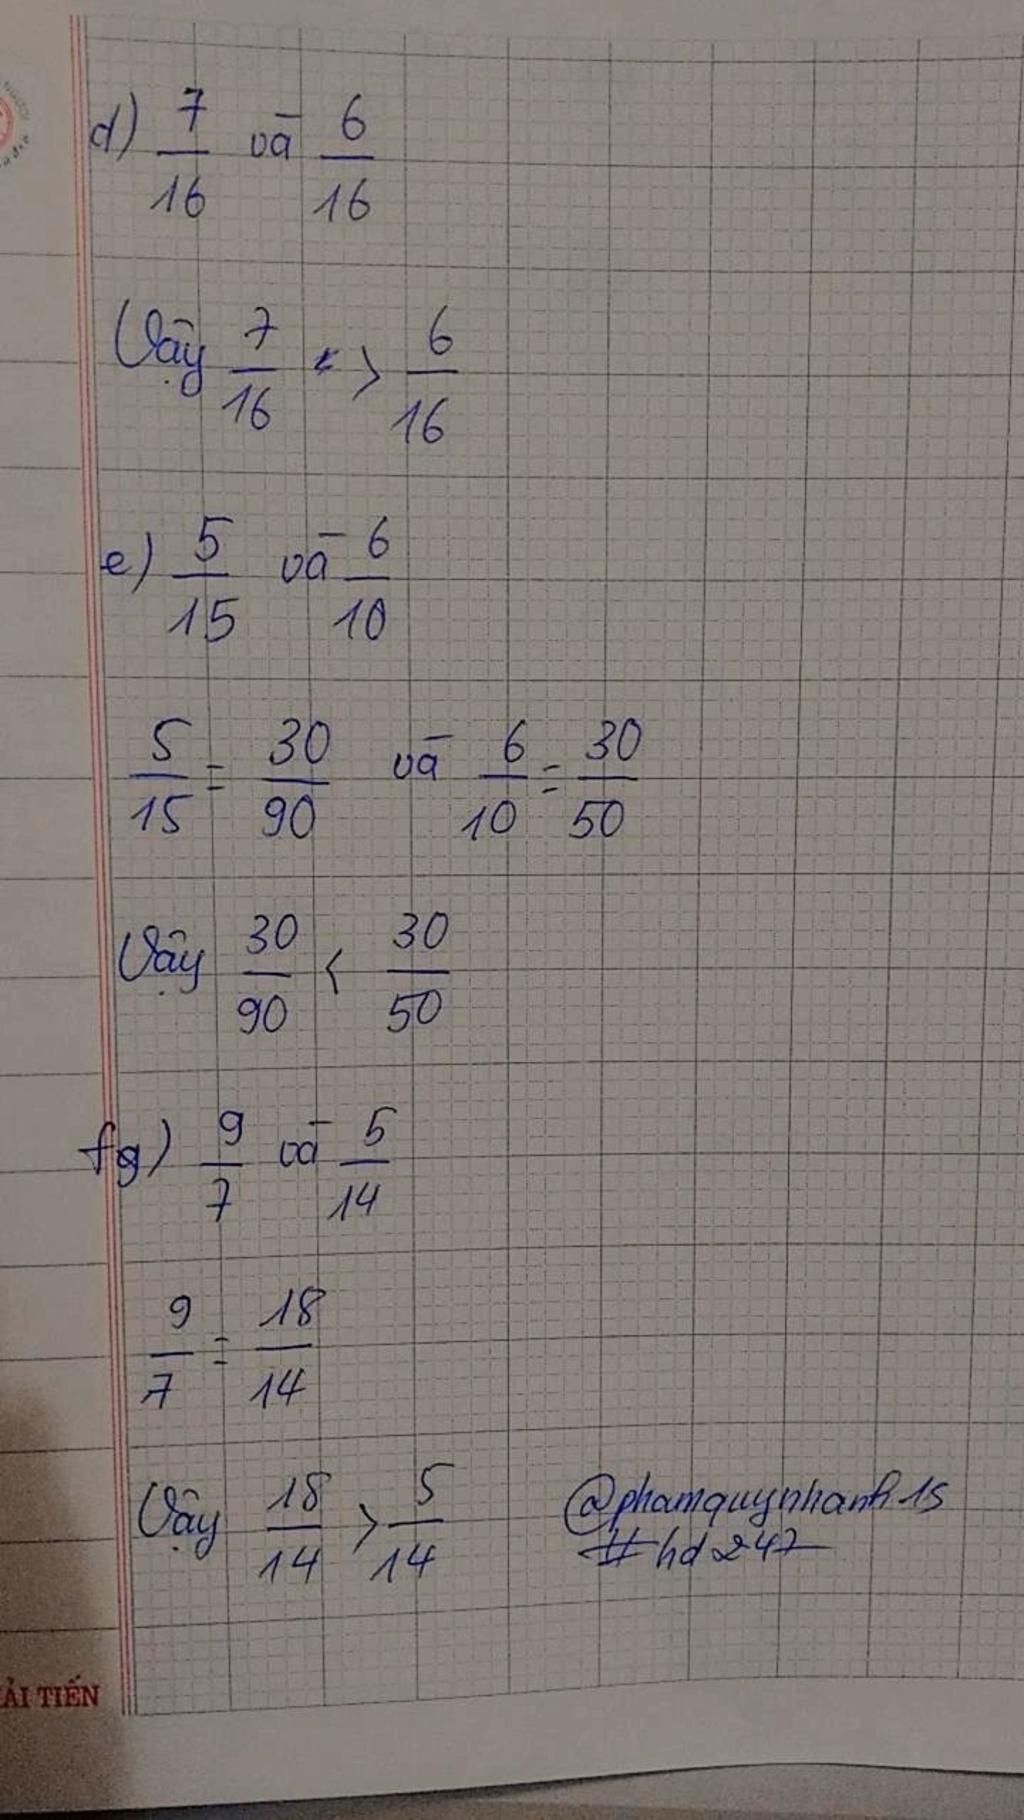 d) 7/16 và 6/16
Vậy 7/16 > 6/16
e) 5/15 và 6/10
5/15 = 30/90 và 6/10 = 30/50
Vậy 30/90 < 30/50
fg) 9/7 và 5/14
9/7 = 18/14
Vậy 18/14 > 5/14
@phamquynhanh15
#hd247
ẢI TIẾN